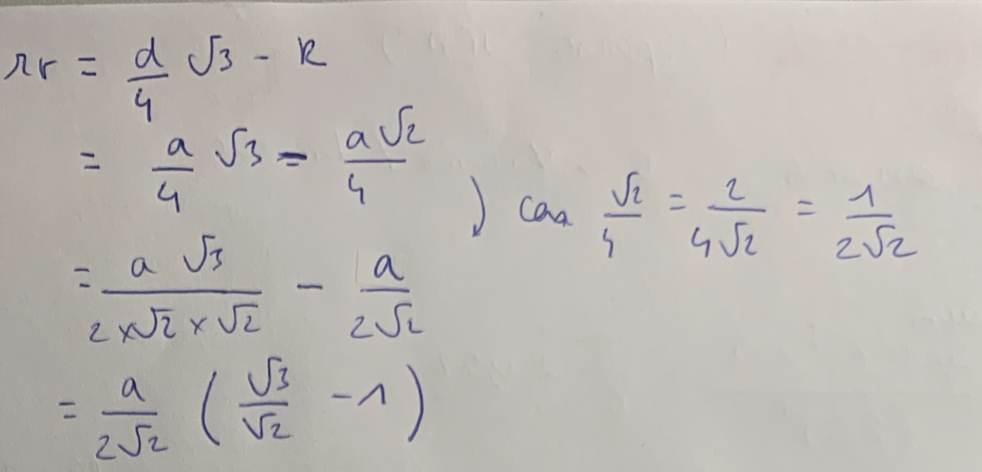 rr = d/4 √3 - R
= a/4 √3 - a√2/4
) car √2/4 = 2/4√2 = 1/2√2
= a √3/2×√2×√2 - a/2√2
= a/2√2 ( √3/√2 - 1 )